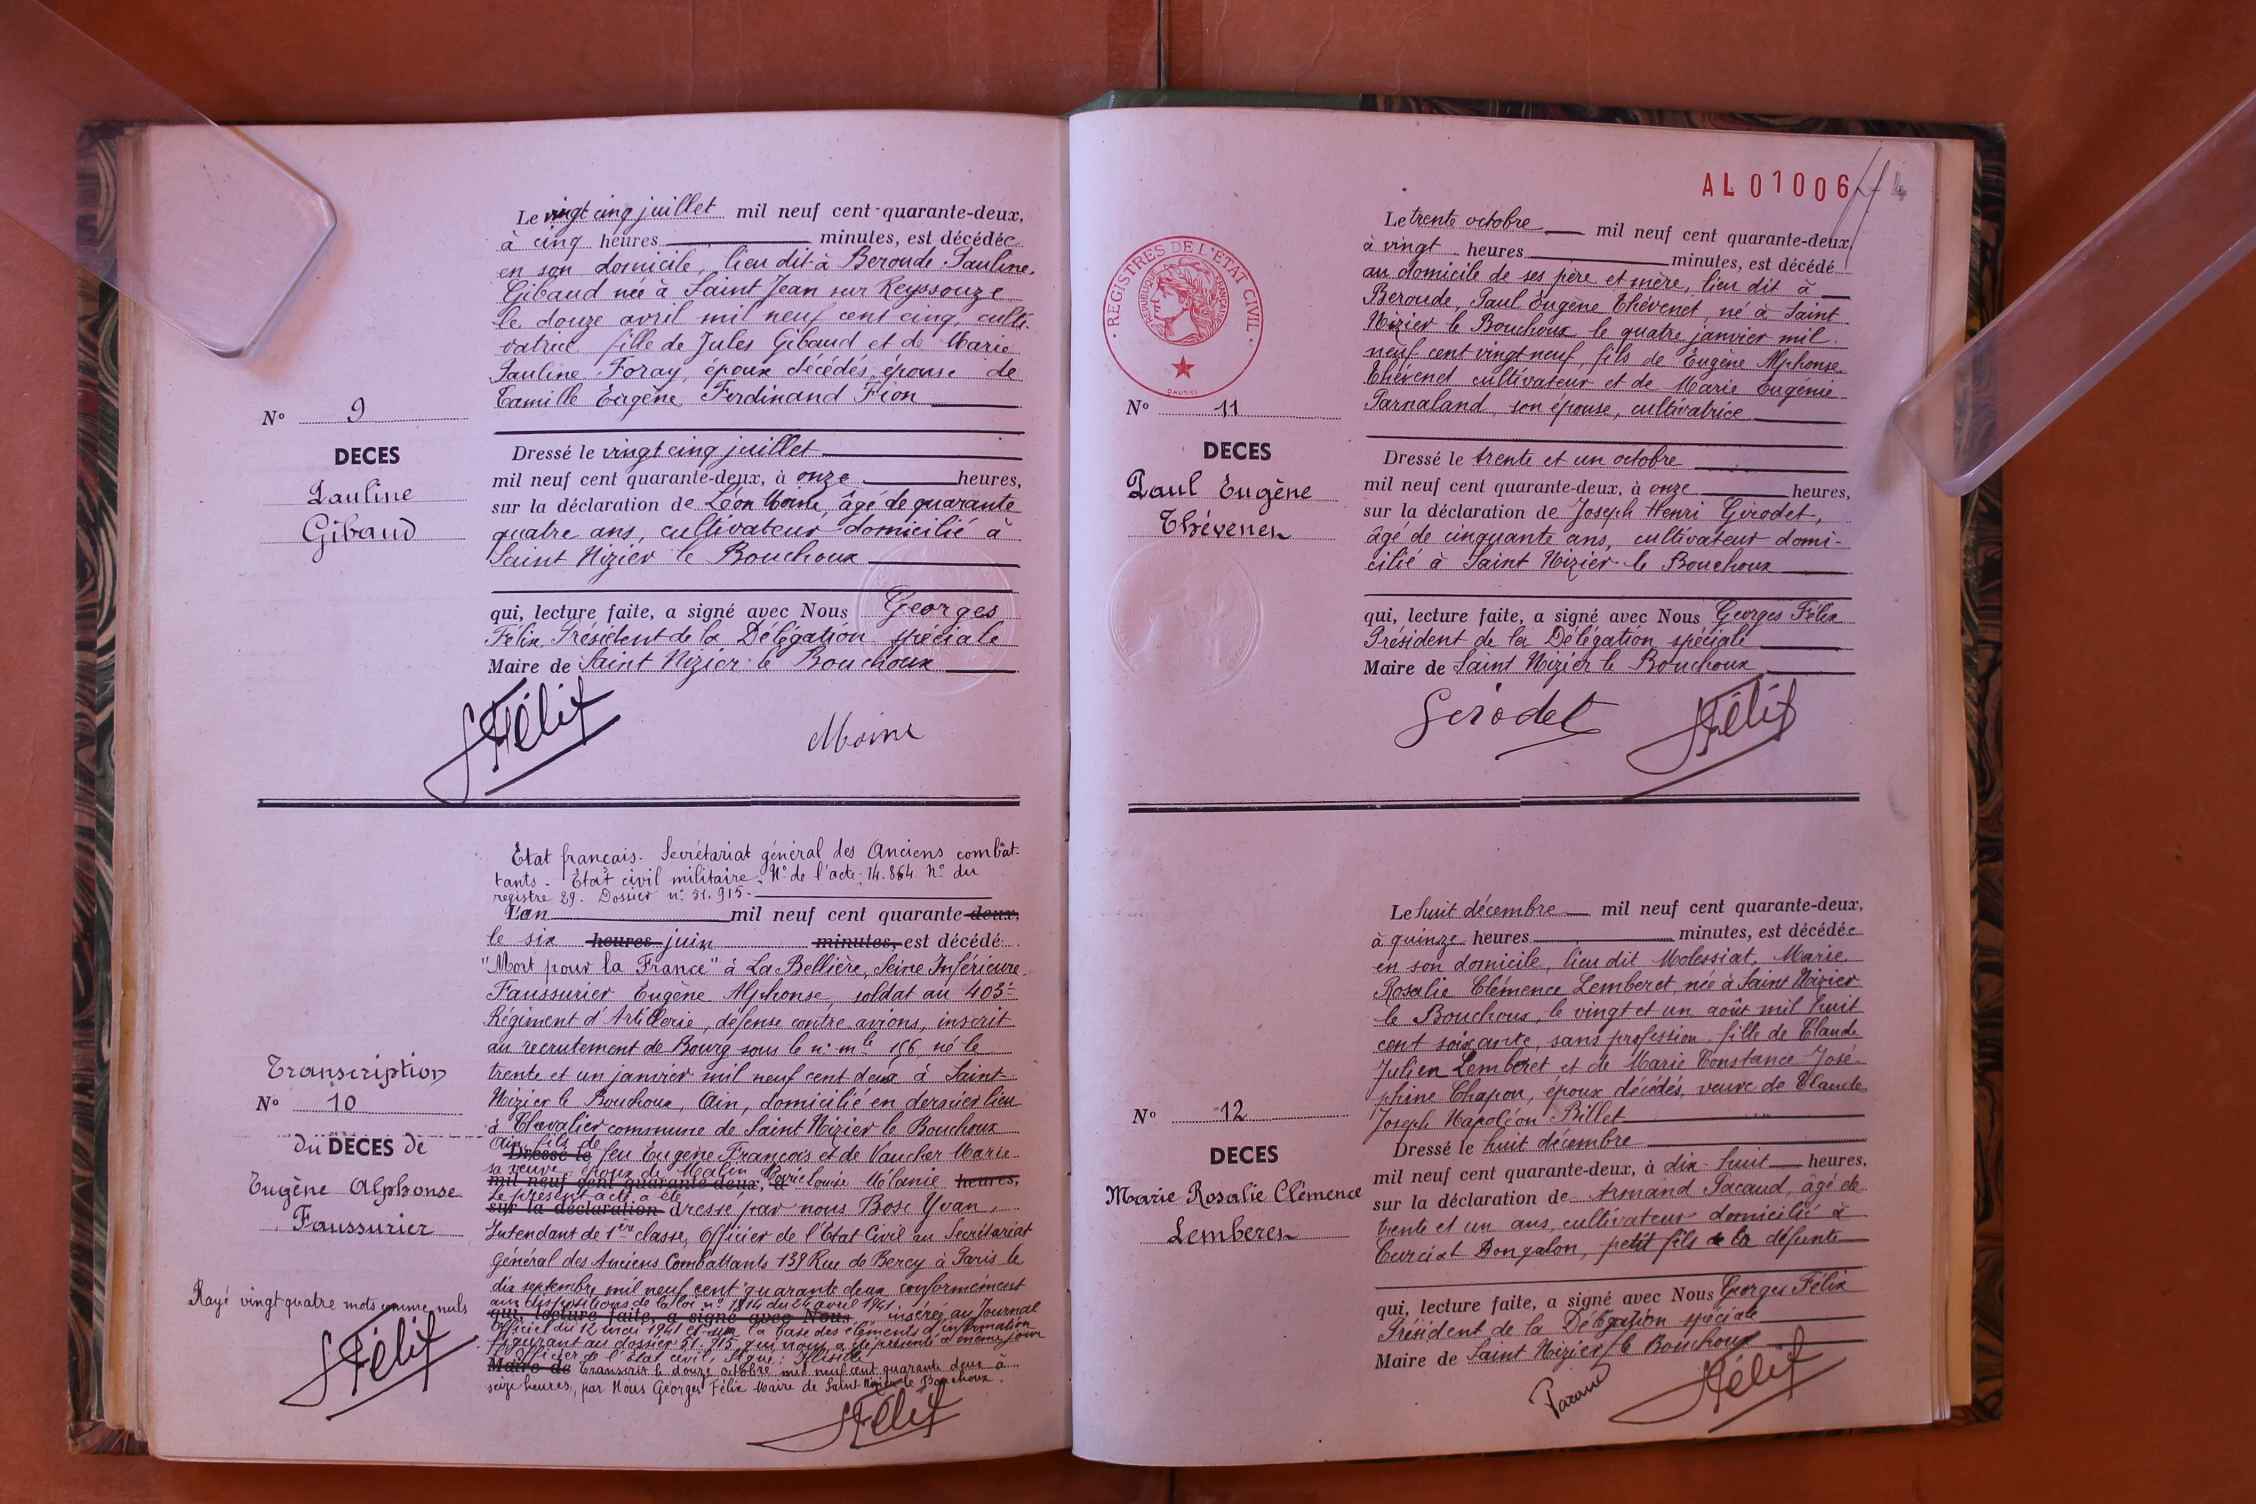 Le vingt cinq juillet mil neuf cent quarante-deux,
à cinq heures minutes, est décédée
en son domicile, lieu dit à Beroude Pauline
Gibaud née à Saint Jean sur Reyssouze
le douze avril mil neuf cent cinq, culti-
vatrice fille de Jules Gibaud et de Marie
Pauline Foray, époux décédés, épouse de
Camille Eugène Ferdinand Fion
N° 9
DECES
Pauline
Gibaud
Dressé le vingt cinq juillet
mil neuf cent quarante-deux, à onze heures,
sur la déclaration de Léon Moine, âgé de quarante
quatre ans, cultivateur domicilié à
Saint Nizier le Bouchoux
qui, lecture faite, a signé avec Nous Georges
Félix Président de la Délégation spéciale
Maire de Saint Nizier le Bouchoux
Félix
Moine
Etat français. Secrétariat général des Anciens combat-
tants. Etat civil militaire. N° de l'acte: 14.864 N° du
registre 29. Dossier n° 51.915.
L'an mil neuf cent quarante deux,
le six heures juin minutes, est décédé
"Mort pour la France" à La Bellière, Seine Inférieure
Faussurier Eugène Alphonse, soldat au 403e
Régiment d'Artillerie, défense contre avions, inscrit
au recrutement de Bourg sous le n° mle 156, né le
trente et un janvier mil neuf cent deux à Saint
Nizier le Bouchoux, Ain, domicilié en dernier lieu
à Chevalier commune de Saint Nizier le Bouchoux
Ain, fils de
Dressé le feu Eugène François et de Vaucher Marie
sa veuve, époux de Malin
mil neuf cent quarante-deux, à Marie Louise Mélanie heures,
Le présent acte a été
sur la déclaration dressé par nous Bosc Yvan,
Intendant de 1ère classe, Officier de l'Etat Civil au Secrétariat
Général des Anciens Combattants 139 Rue de Bercy à Paris le
dix septembre mil neuf cent quarante deux conformément
aux dispositions de la loi n° 1814 du 24 avril 1941 inséré au Journal
qui, lecture faite, a signé avec Nous
Officiel du 12 mai 1941 et sur la base des éléments d'information
figurant au dossier 51.915 qui nous a été présenté le même jour
L'Officier de l'état civil, Signé:
Maire de Transcrit le douze octobre mil neuf cent quarante deux à
seize heures, par Nous Georges Félix Maire de Saint Nizier le Bouchoux.
Transcription
N° 10
du DECES de
Eugène Alphonse
Faussurier
Rayé vingt quatre mots comme nuls
Félix
Félix
AL 01006
REGISTRES DE L'ETAT CIVIL
REPUBLIQUE FRANÇAISE
Le trente octobre mil neuf cent quarante-deux,
à vingt heures minutes, est décédé
au domicile de ses père et mère, lieu dit à
Beroude, Paul Eugène Thévenet, né à Saint
Nizier le Bouchoux le quatre janvier mil
neuf cent vingt neuf, fils de Eugène Alphonse
Thévenet cultivateur et de Marie Eugénie
Parnaland, son épouse, cultivatrice
N° 11
DECES
Paul Eugène
Thévenet
Dressé le trente et un octobre
mil neuf cent quarante-deux, à onze heures,
sur la déclaration de Joseph Henri Girodet,
âgé de cinquante ans, cultivateur domi-
cilié à Saint Nizier le Bouchoux
qui, lecture faite, a signé avec Nous Georges Félix
Président de la Délégation spéciale
Maire de Saint Nizier le Bouchoux
Girodet
Félix
Le huit décembre mil neuf cent quarante-deux,
à quinze heures minutes, est décédée
en son domicile, lieu dit Molessiat, Marie
Rosalie Clémence Lemberet, née à Saint Nizier
le Bouchoux, le vingt et un août mil huit
cent soixante, sans profession, fille de Claude
Julien Lemberet et de Marie Constance José-
phine Chapon, époux décédés, veuve de Claude
Joseph Napoléon Billet
N° 12
DECES
Marie Rosalie Clémence
Lemberet
Dressé le huit décembre
mil neuf cent quarante-deux, à dix huit heures,
sur la déclaration de Armand Pacaud, âgé de
trente et un ans, cultivateur domicilié à
Curciat Dongalon, petit fils de la défunte
qui, lecture faite, a signé avec Nous Georges Félix
Président de la Délégation spéciale
Maire de Saint Nizier le Bouchoux
Pacaud
Félix